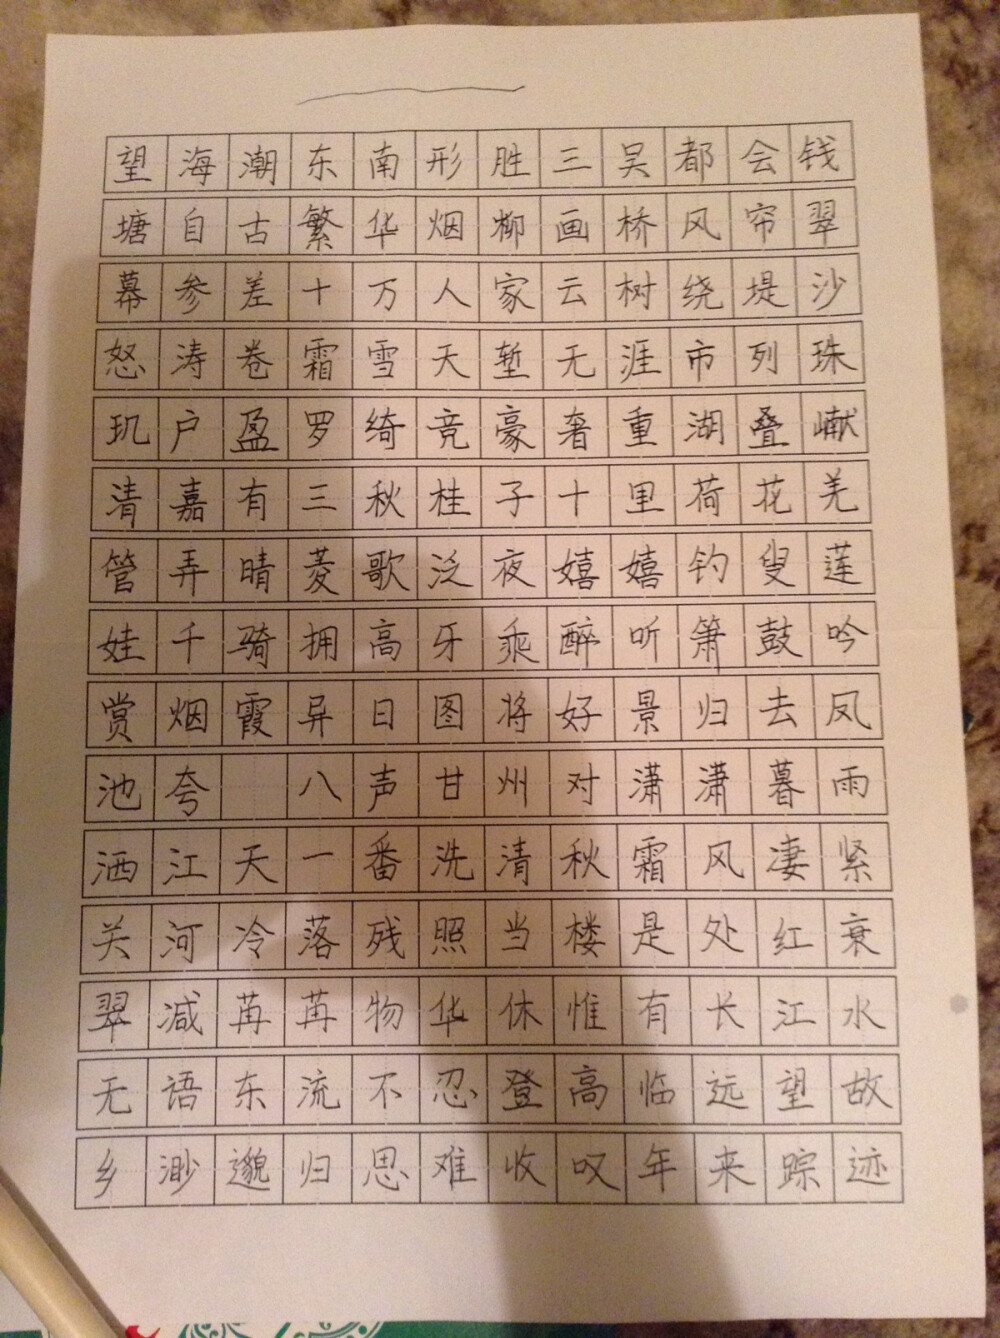 望海潮东南形胜三吴都会钱
塘自古繁华烟柳画桥风帘翠
幕参差十万人家云树绕堤沙
怒涛卷霜雪天堑无涯市列珠
玑户盈罗绮竞豪奢重湖叠巘
清嘉有三秋桂子十里荷花羌
管弄晴菱歌泛夜嬉嬉钓叟莲
娃千骑拥高牙乘醉听箫鼓吟
赏烟霞异日图将好景归去凤
池夸 八声甘州对潇潇暮雨
洒江天一番洗清秋霜风凄紧
关河冷落残照当楼是处红衰
翠减苒苒物华休惟有长江水
无语东流不忍登高临远望故
乡渺邈归思难收叹年来踪迹